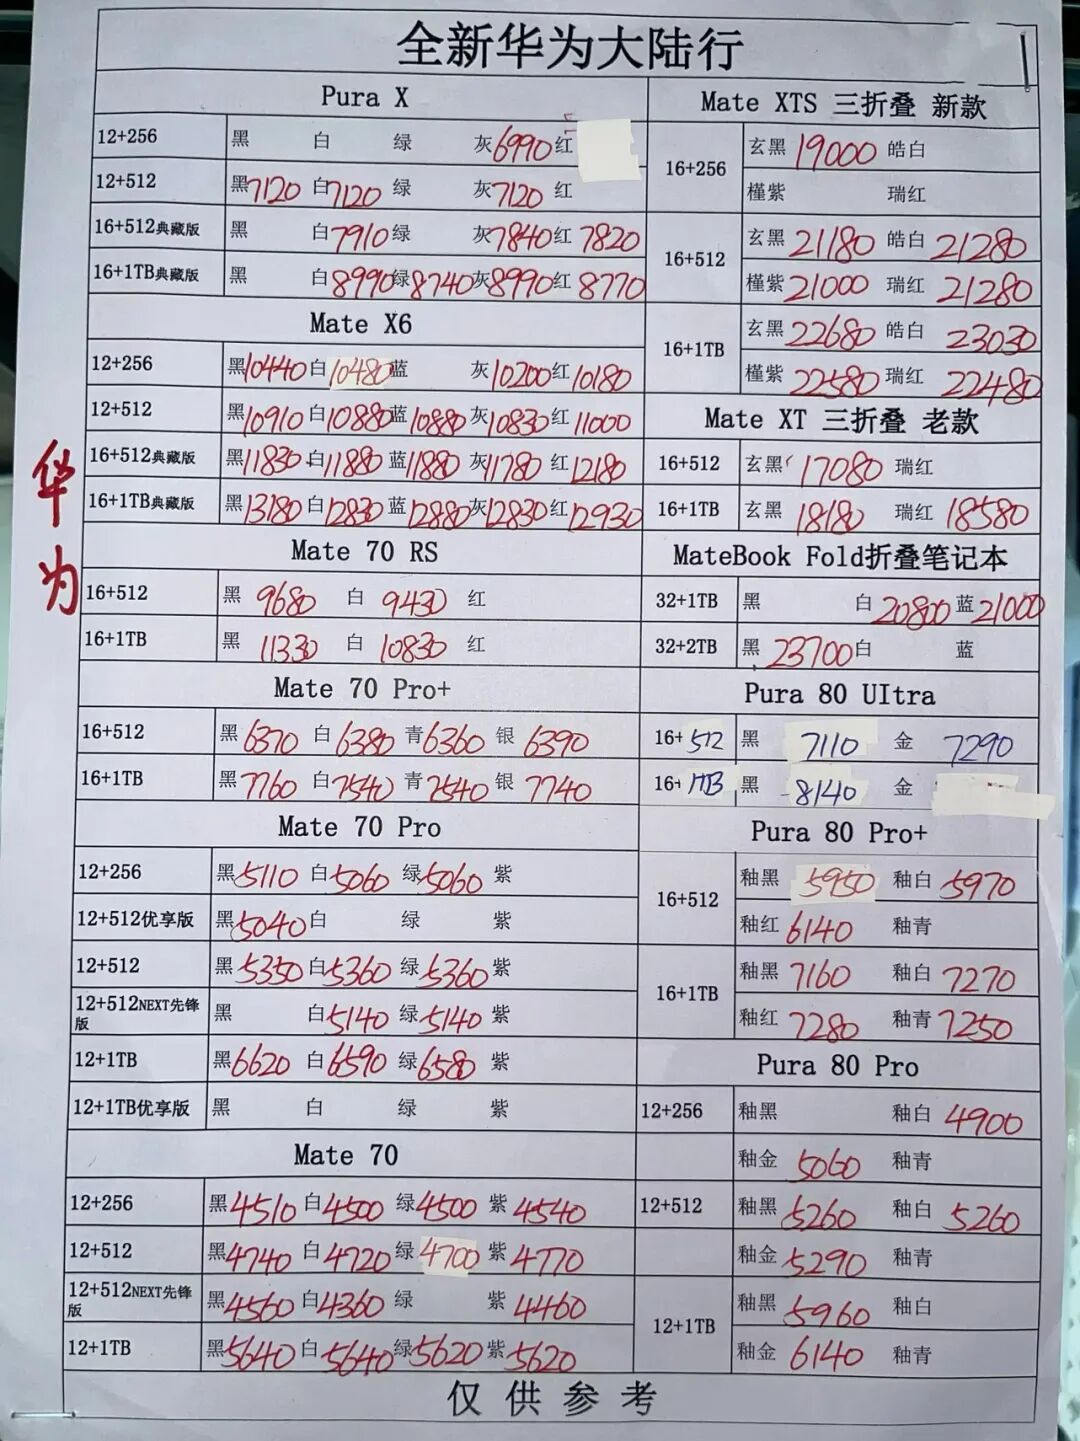 全新华为大陆行
华为
Pura X
12+256 黑 白 绿 灰6990 红
12+512 黑7120 白7120 绿 灰7120 红
16+512典藏版 黑 白7910 绿 灰7840 红7820
16+1TB典藏版 黑 白8990 绿8740 灰8990 红8770
Mate X6
12+256 黑10440 白10480 蓝 灰10200 红10180
12+512 黑10910 白10880 蓝10880 灰10830 红11000
16+512典藏版 黑11830 白11880 蓝11880 灰11780 红12180
16+1TB典藏版 黑13180 白12830 蓝12880 灰12830 红12930
Mate 70 RS
16+512 黑 9680 白 9430 红
16+1TB 黑 11330 白 10830 红
Mate 70 Pro+
16+512 黑6370 白6380 青6360 银 6390
16+1TB 黑7760 白7540 青7540 银 7740
Mate 70 Pro
12+256 黑5110 白5060 绿5060 紫
12+512优享版 黑5040 白 绿 紫
12+512 黑5350 白5360 绿5360 紫
12+512NEXT先锋版 黑 白5140 绿5140 紫
12+1TB 黑6620 白6590 绿6580 紫
12+1TB优享版 黑 白 绿 紫
Mate 70
12+256 黑4510 白4500 绿4500 紫4540
12+512 黑4740 白4720 绿4700 紫4770
12+512NEXT先锋版 黑4560 白4360 绿 紫4460
12+1TB 黑5640 白5640 绿5620 紫5620
Mate XTS 三折叠 新款
16+256 玄黑19000 皓白
槿紫 瑞红
16+512 玄黑21180 皓白21280
槿紫21000 瑞红21280
16+1TB 玄黑22680 皓白23030
槿紫22580 瑞红22480
Mate XT 三折叠 老款
16+512 玄黑17080 瑞红
16+1TB 玄黑18180 瑞红18580
MateBook Fold折叠笔记本
32+1TB 黑 白20800 蓝21000
32+2TB 黑23700 白 蓝
Pura 80 UItra
16+512 黑 7110 金 7290
16+1TB 黑 8140 金
Pura 80 Pro+
16+512 釉黑 5950 釉白5970
釉红6140 釉青
16+1TB 釉黑7160 釉白7270
釉红7280 釉青7250
Pura 80 Pro
12+256 釉黑 釉白4900
釉金5060 釉青
12+512 釉黑5260 釉白5260
釉金5290 釉青
12+1TB 釉黑5960 釉白
釉金6140 釉青
仅供参考